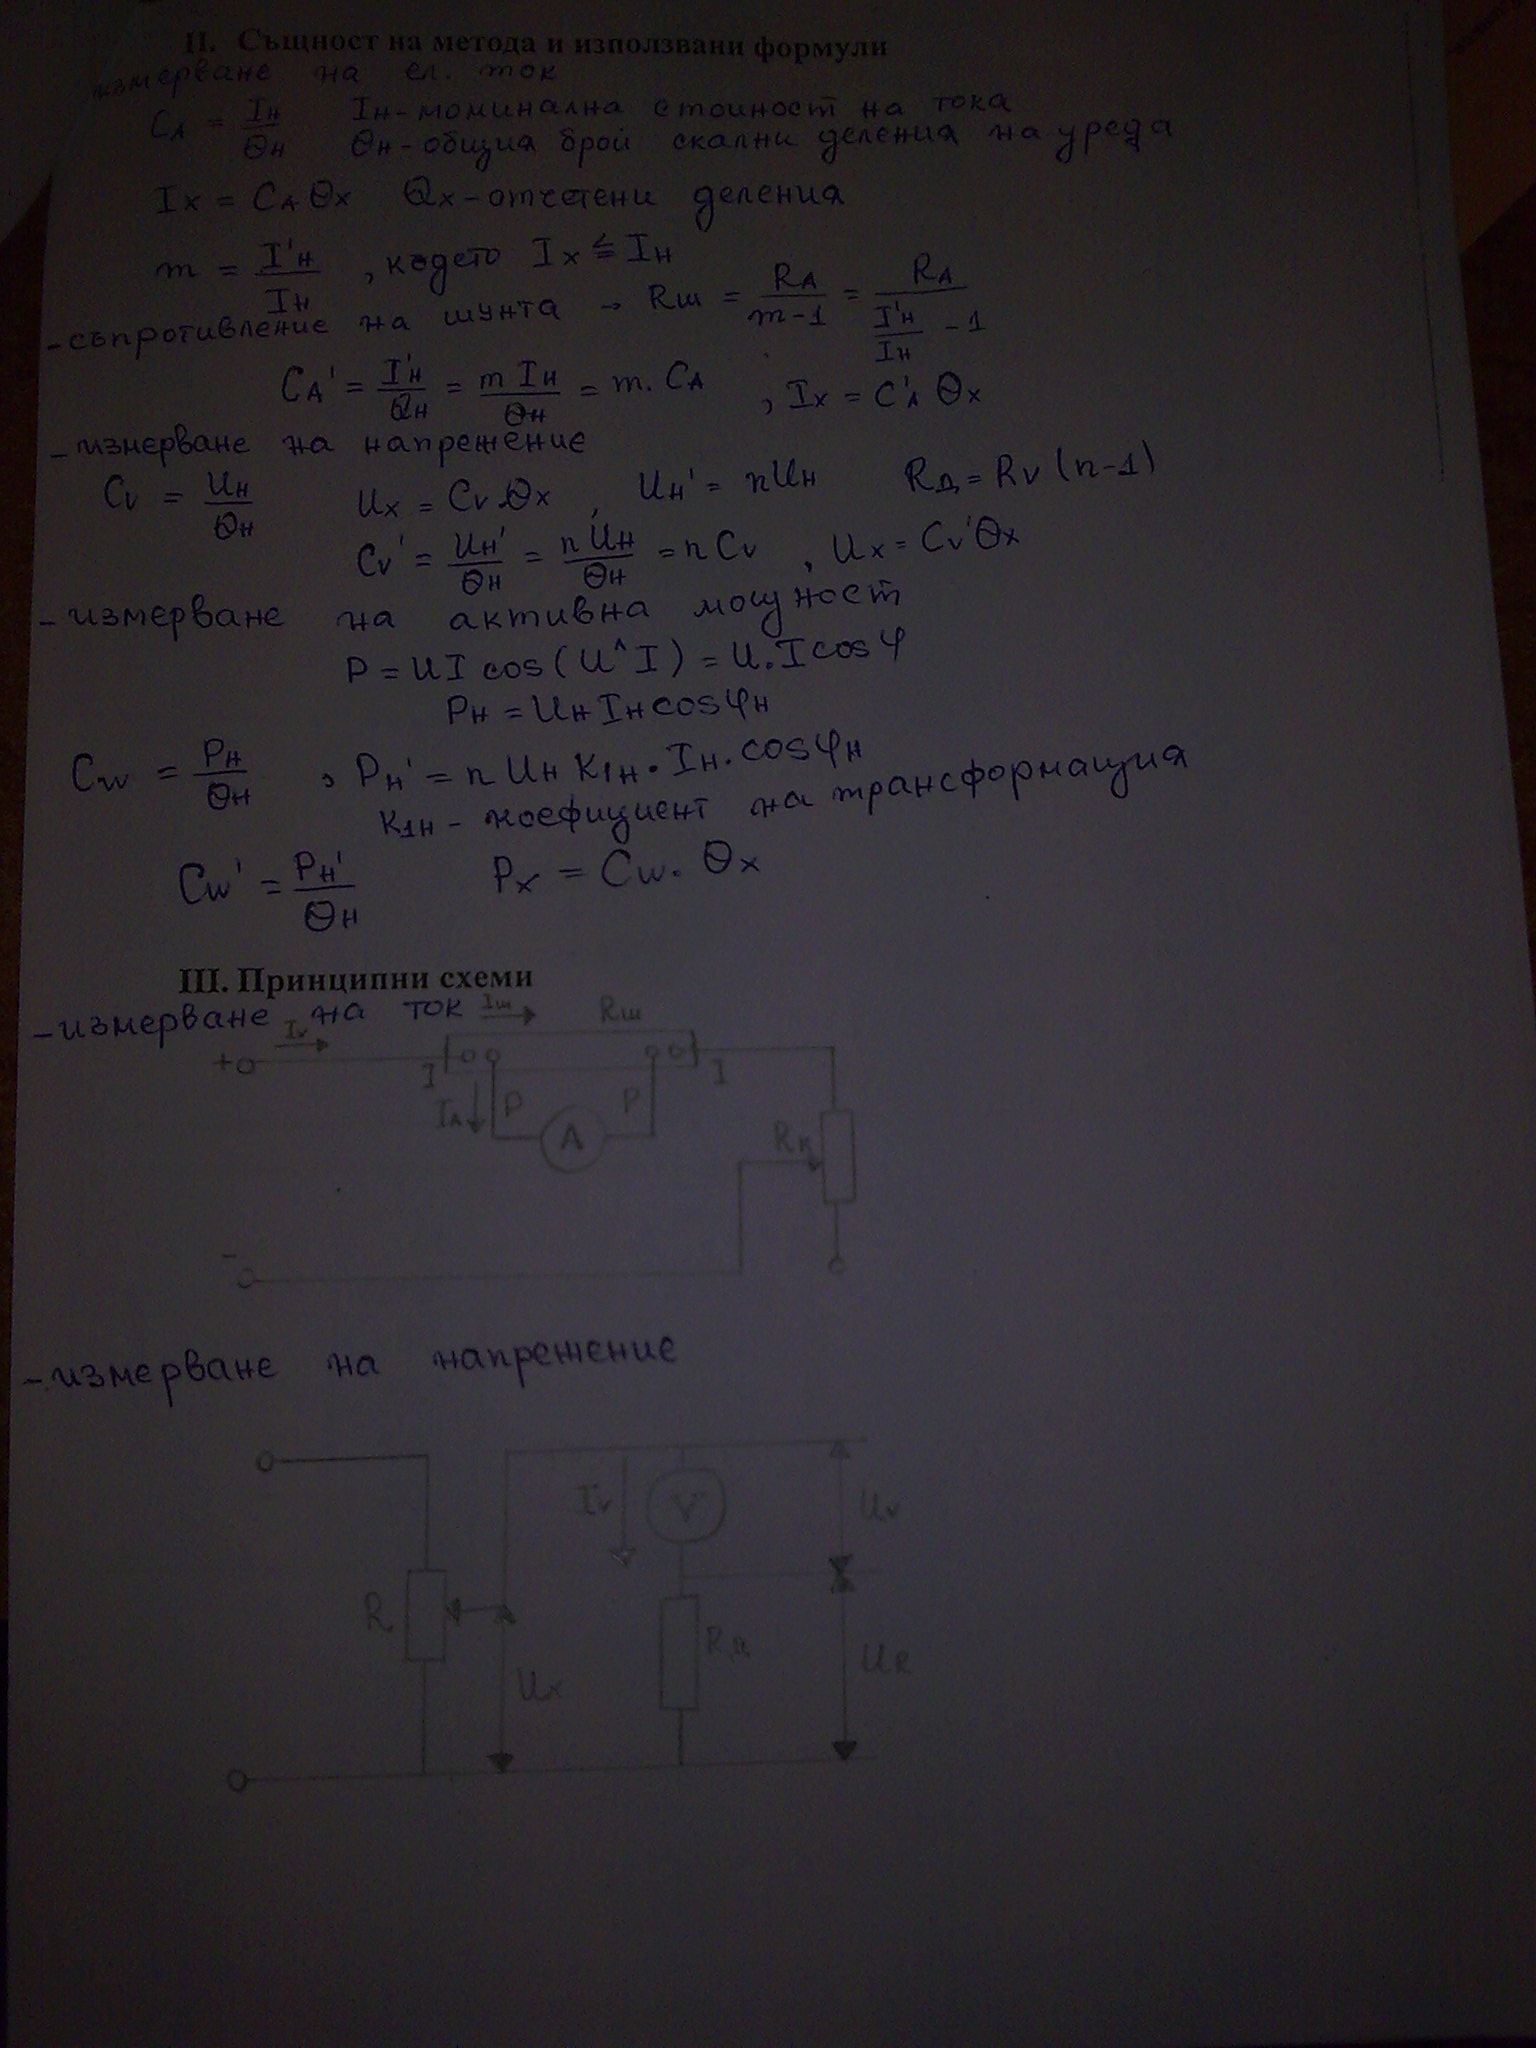 II. Същност на метода и използвани формули
измерване на ел. ток
CA = Iн/Θн Iн - номинална стойност на тока
Θн - общия брой скални деления на уреда
Ix = CA Θx Θx - отчетени деления
m = I'н/Iн , където Ix ≤ Iн
- съпротивление на шунта → Rш = RA/(m-1) = RA/(I'н/Iн - 1)
CA' = I'н/Θн = m Iн/Θн = m. CA , Ix = C'A Θx
- измерване на напрежение
Cv = Uн/Θн Ux = Cv.Θx , Uн' = nUн RД = Rv (n-1)
Cv' = Uн'/Θн = n Uн/Θн = n Cv , Ux = Cv'Θx
- измерване на активна мощност
P = UI cos(U^I) = U.I cosφ
Pн = Uн Iн cosφн
Cw = Pн/Θн , Pн' = n Uн K1н . Iн . cosφн
K1н - коефициент на трансформация
Cw' = Pн'/Θн Px = Cw. Θx
III. Принципни схеми
- измерване на ток
Iш Rш
Iv
+
I I
IA P P
A
Rк
-
- измерване на напрежение
Iv V Uv
R RД UR
Ux